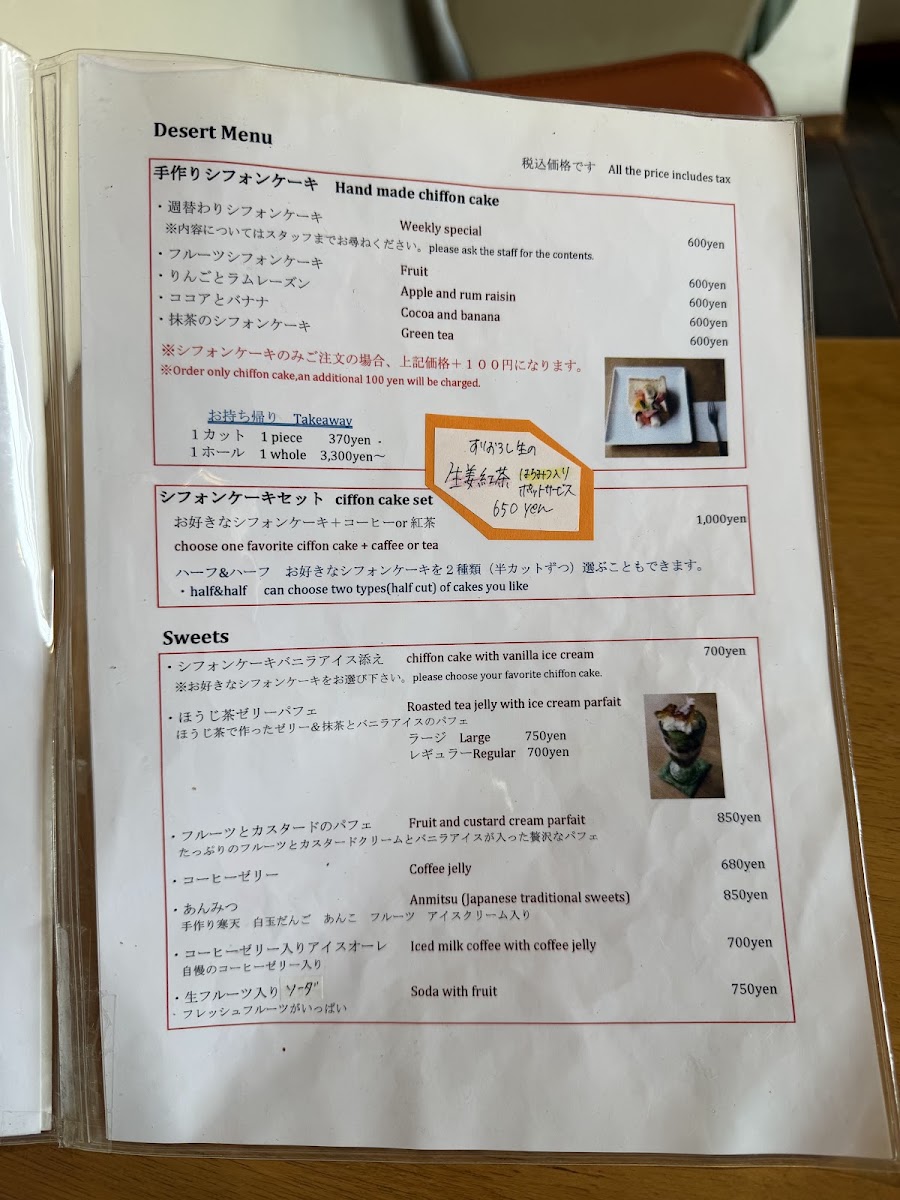 Desert Menu
税込価格です All the price includes tax
手作りシフォンケーキ Hand made chiffon cake
・週替わりシフォンケーキ Weekly special 600yen
※内容についてはスタッフまでお尋ねください。please ask the staff for the contents.
・フルーツシフォンケーキ Fruit 600yen
・りんごとラムレーズン Apple and rum raisin 600yen
・ココアとバナナ Cocoa and banana 600yen
・抹茶のシフォンケーキ Green tea 600yen
※シフォンケーキのみご注文の場合、上記価格＋１００円になります。
※Order only chiffon cake,an additional 100 yen will be charged.
お持ち帰り Takeaway
１カット 1 piece 370yen
１ホール 1 whole 3,300yen～
すりおろし生の
生姜紅茶 はちみつ入り
ポットサービス
650 yen
シフォンケーキセット ciffon cake set
お好きなシフォンケーキ＋コーヒーor 紅茶 1,000yen
choose one favorite ciffon cake + caffee or tea
ハーフ&ハーフ お好きなシフォンケーキを２種類（半カットずつ）選ぶこともできます。
・half&half can choose two types(half cut) of cakes you like
Sweets
・シフォンケーキバニラアイス添え chiffon cake with vanilla ice cream 700yen
※お好きなシフォンケーキをお選び下さい。please choose your favorite chiffon cake.
・ほうじ茶ゼリーパフェ Roasted tea jelly with ice cream parfait
ほうじ茶で作ったゼリー＆抹茶とバニラアイスのパフェ
ラージ Large 750yen
レギュラーRegular 700yen
・フルーツとカスタードのパフェ Fruit and custard cream parfait 850yen
たっぷりのフルーツとカスタードクリームとバニラアイスが入った贅沢なパフェ
・コーヒーゼリー Coffee jelly 680yen
・あんみつ Anmitsu (Japanese traditional sweets) 850yen
手作り寒天 白玉だんご あんこ フルーツ アイスクリーム入り
・コーヒーゼリー入りアイスオーレ Iced milk coffee with coffee jelly 700yen
自慢のコーヒーゼリー入り
・生フルーツ入りソーダ Soda with fruit 750yen
フレッシュフルーツがいっぱい